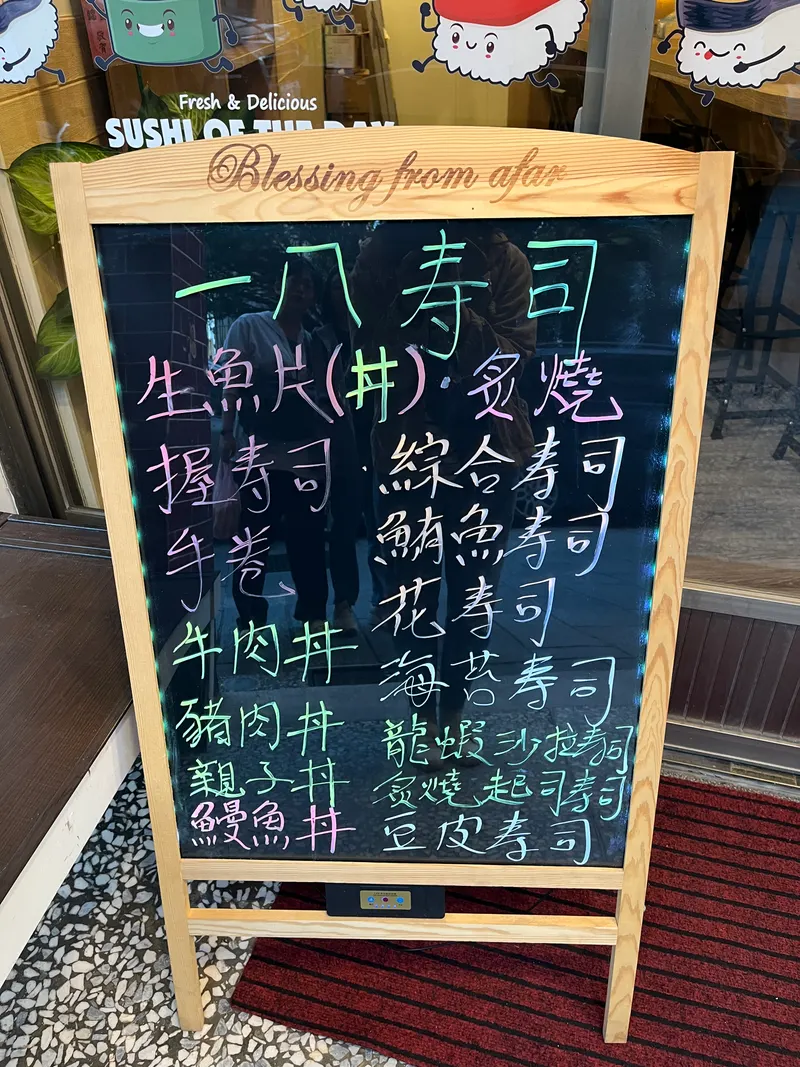 Fresh & Delicious
SUSHI OF THE DAY
Blessing from afar
一八寿司
生魚片(丼)·炙燒
握寿司·綜合寿司
手卷 鮪魚寿司
花寿司
牛肉丼 海苔寿司
豬肉丼 龍蝦沙拉寿司
親子丼 炙燒起司寿司
鰻魚丼 豆皮寿司